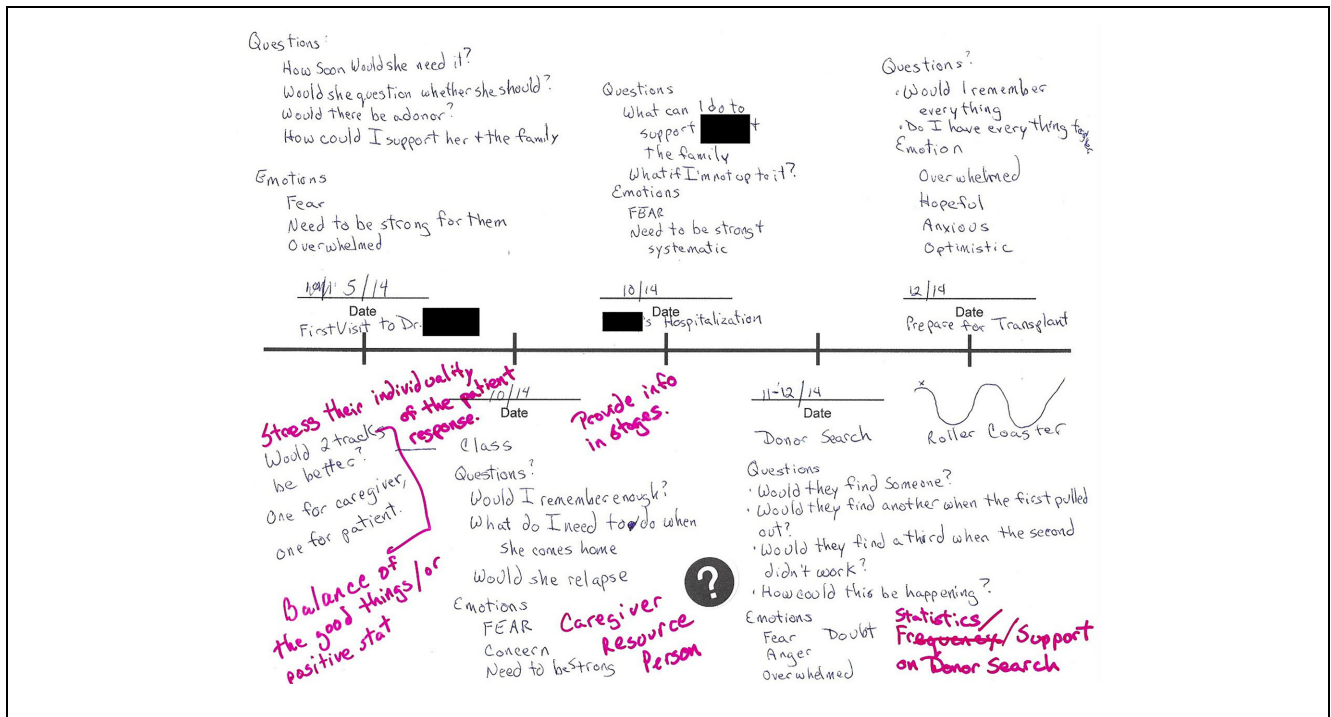 Questions:
How Soon Would she need it?
Would she question whether she should?
Would there be a donor?
How could I support her + the family
Emotions
Fear
Need to be strong for them
Overwhelmed
5/14
Date
First Visit to Dr.
Questions
What can I do to
support +
the family
What if I'm not up to it?
Emotions
FEAR
Need to be strong +
systematic
10/14
Date
's Hospitalization
Questions?
• Would I remember
everything
• Do I have everything
Emotion
Overwhelmed
Hopeful
Anxious
Optimistic
12/14
Date
Prepare for Transplant
Stress their individuality
of the patient
response.
Would 2 tracks
be better?
One for caregiver,
one for patient.
Balance of
the good things/or
positive stat
10/14
Date
Class
Questions?
Would I remember enough?
What do I need to do when
she comes home
Would she relapse
Emotions
FEAR
Concern
Need to be Strong
Provide info
in stages.
?
Caregiver
Resource
Person
11-12/14
Date
Donor Search
Questions
• Would they find Someone?
• Would they find another when the first pulled
out?
• Would they find a third when the second
didn't work?
• How could this be happening?
Emotions
Fear Doubt
Anger
Overwhelmed
x
Roller Coaster
Statistics/
Frequency/Support
on Donor Search